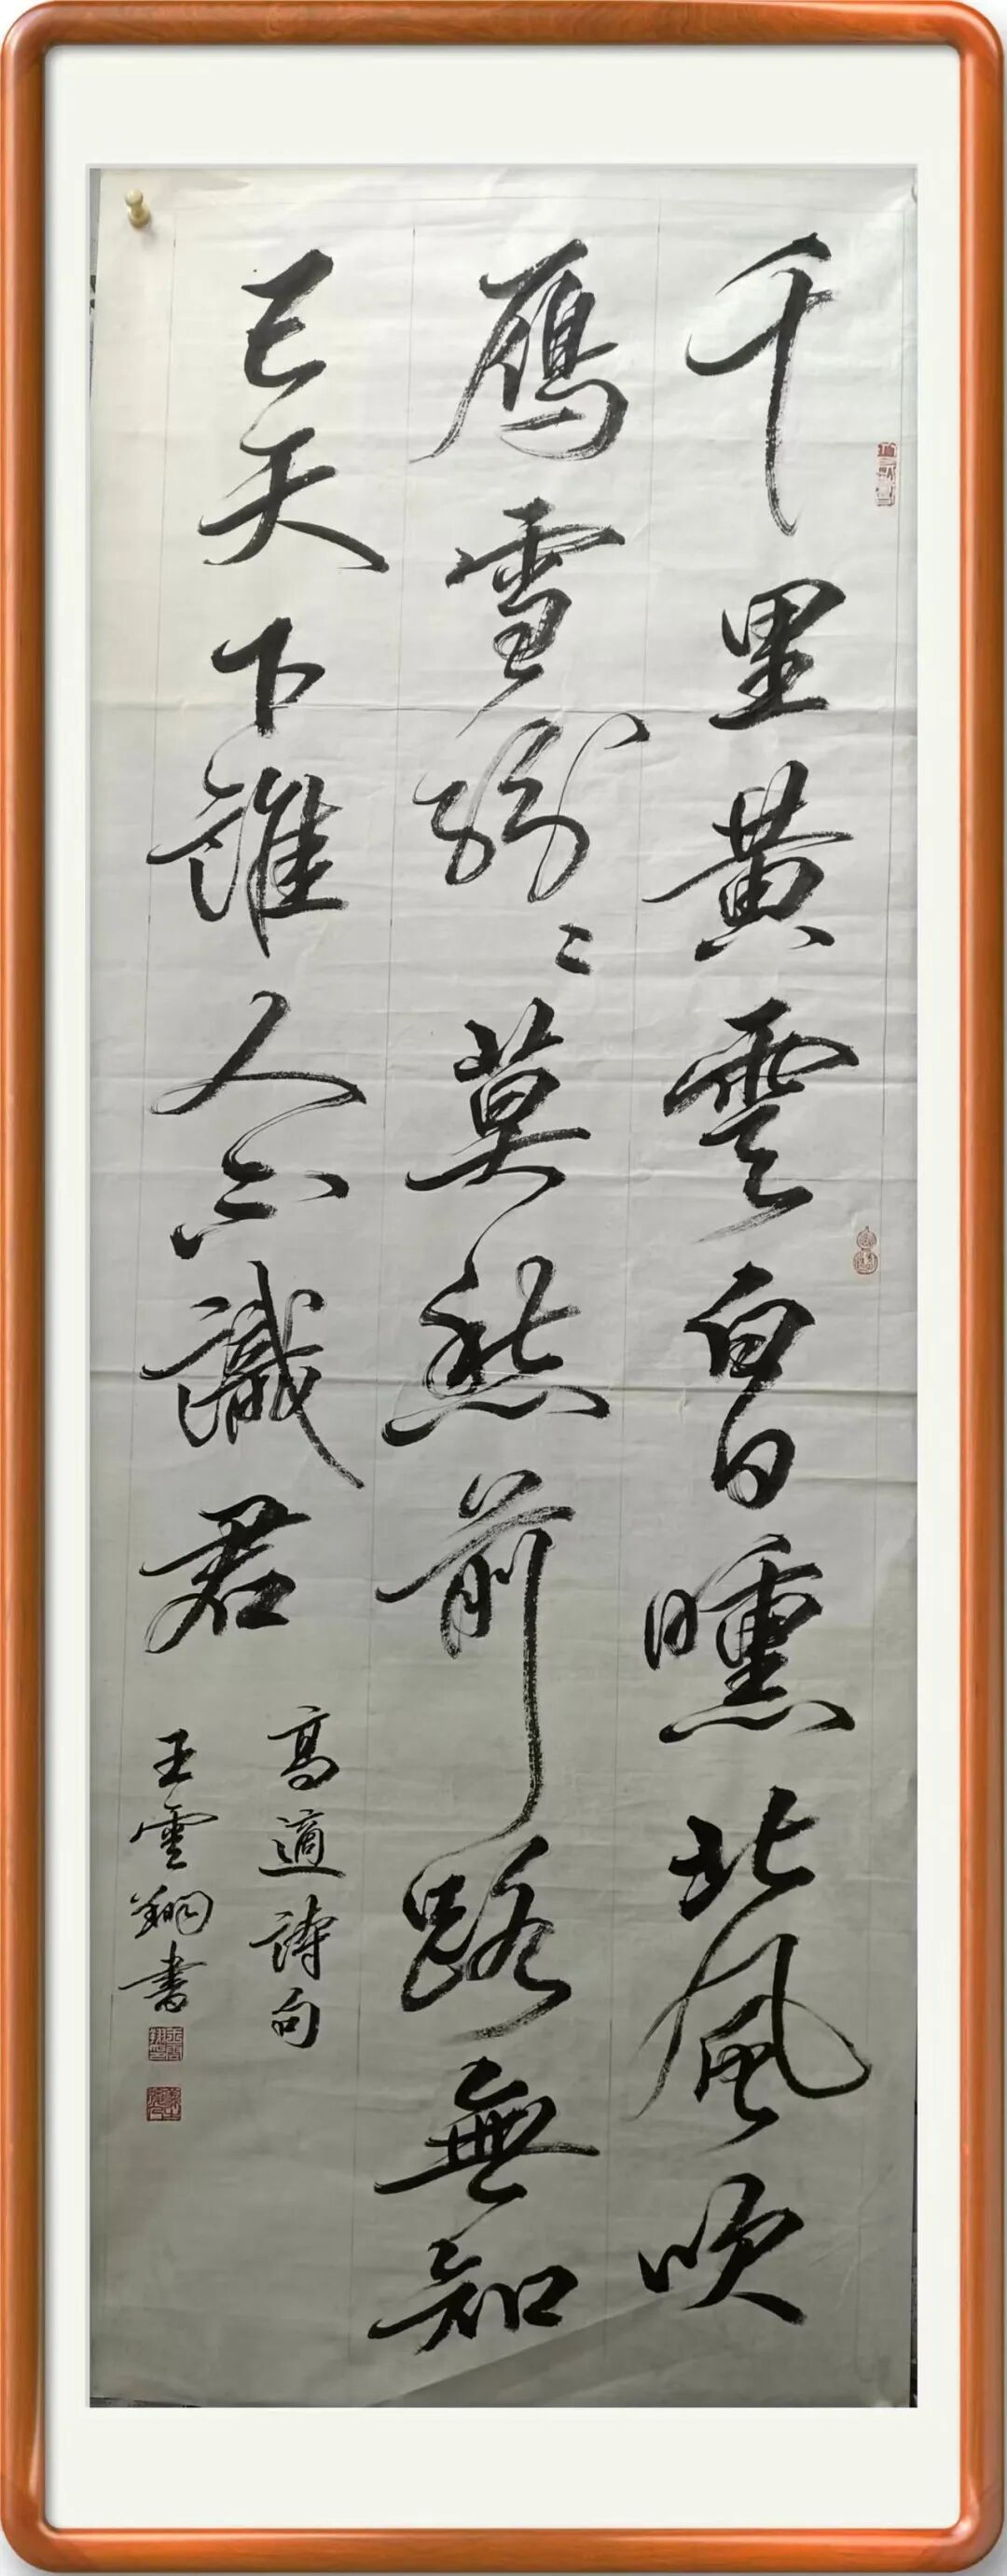 千里黄雲白日曛北風吹
鴈雪紛〻莫愁前路無知
己天下誰人不識君
高適詩句
王雲翔書